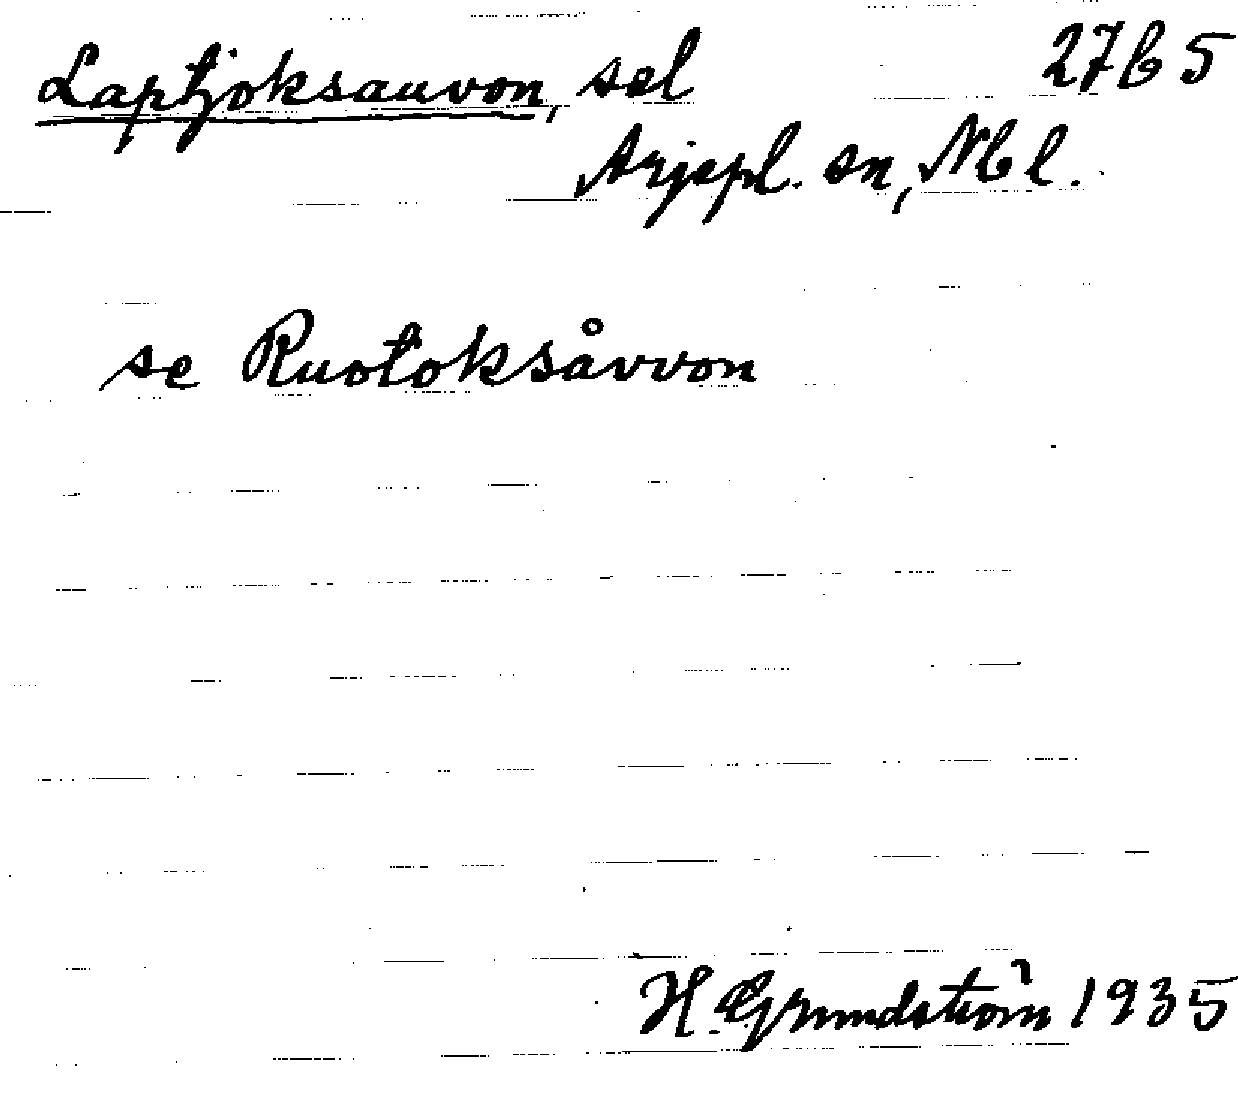 Laptjoksauvon, sel 27b5
Arjepl. sn, Nbl.
se Ruotoksåvvon
H. Grundström 1935